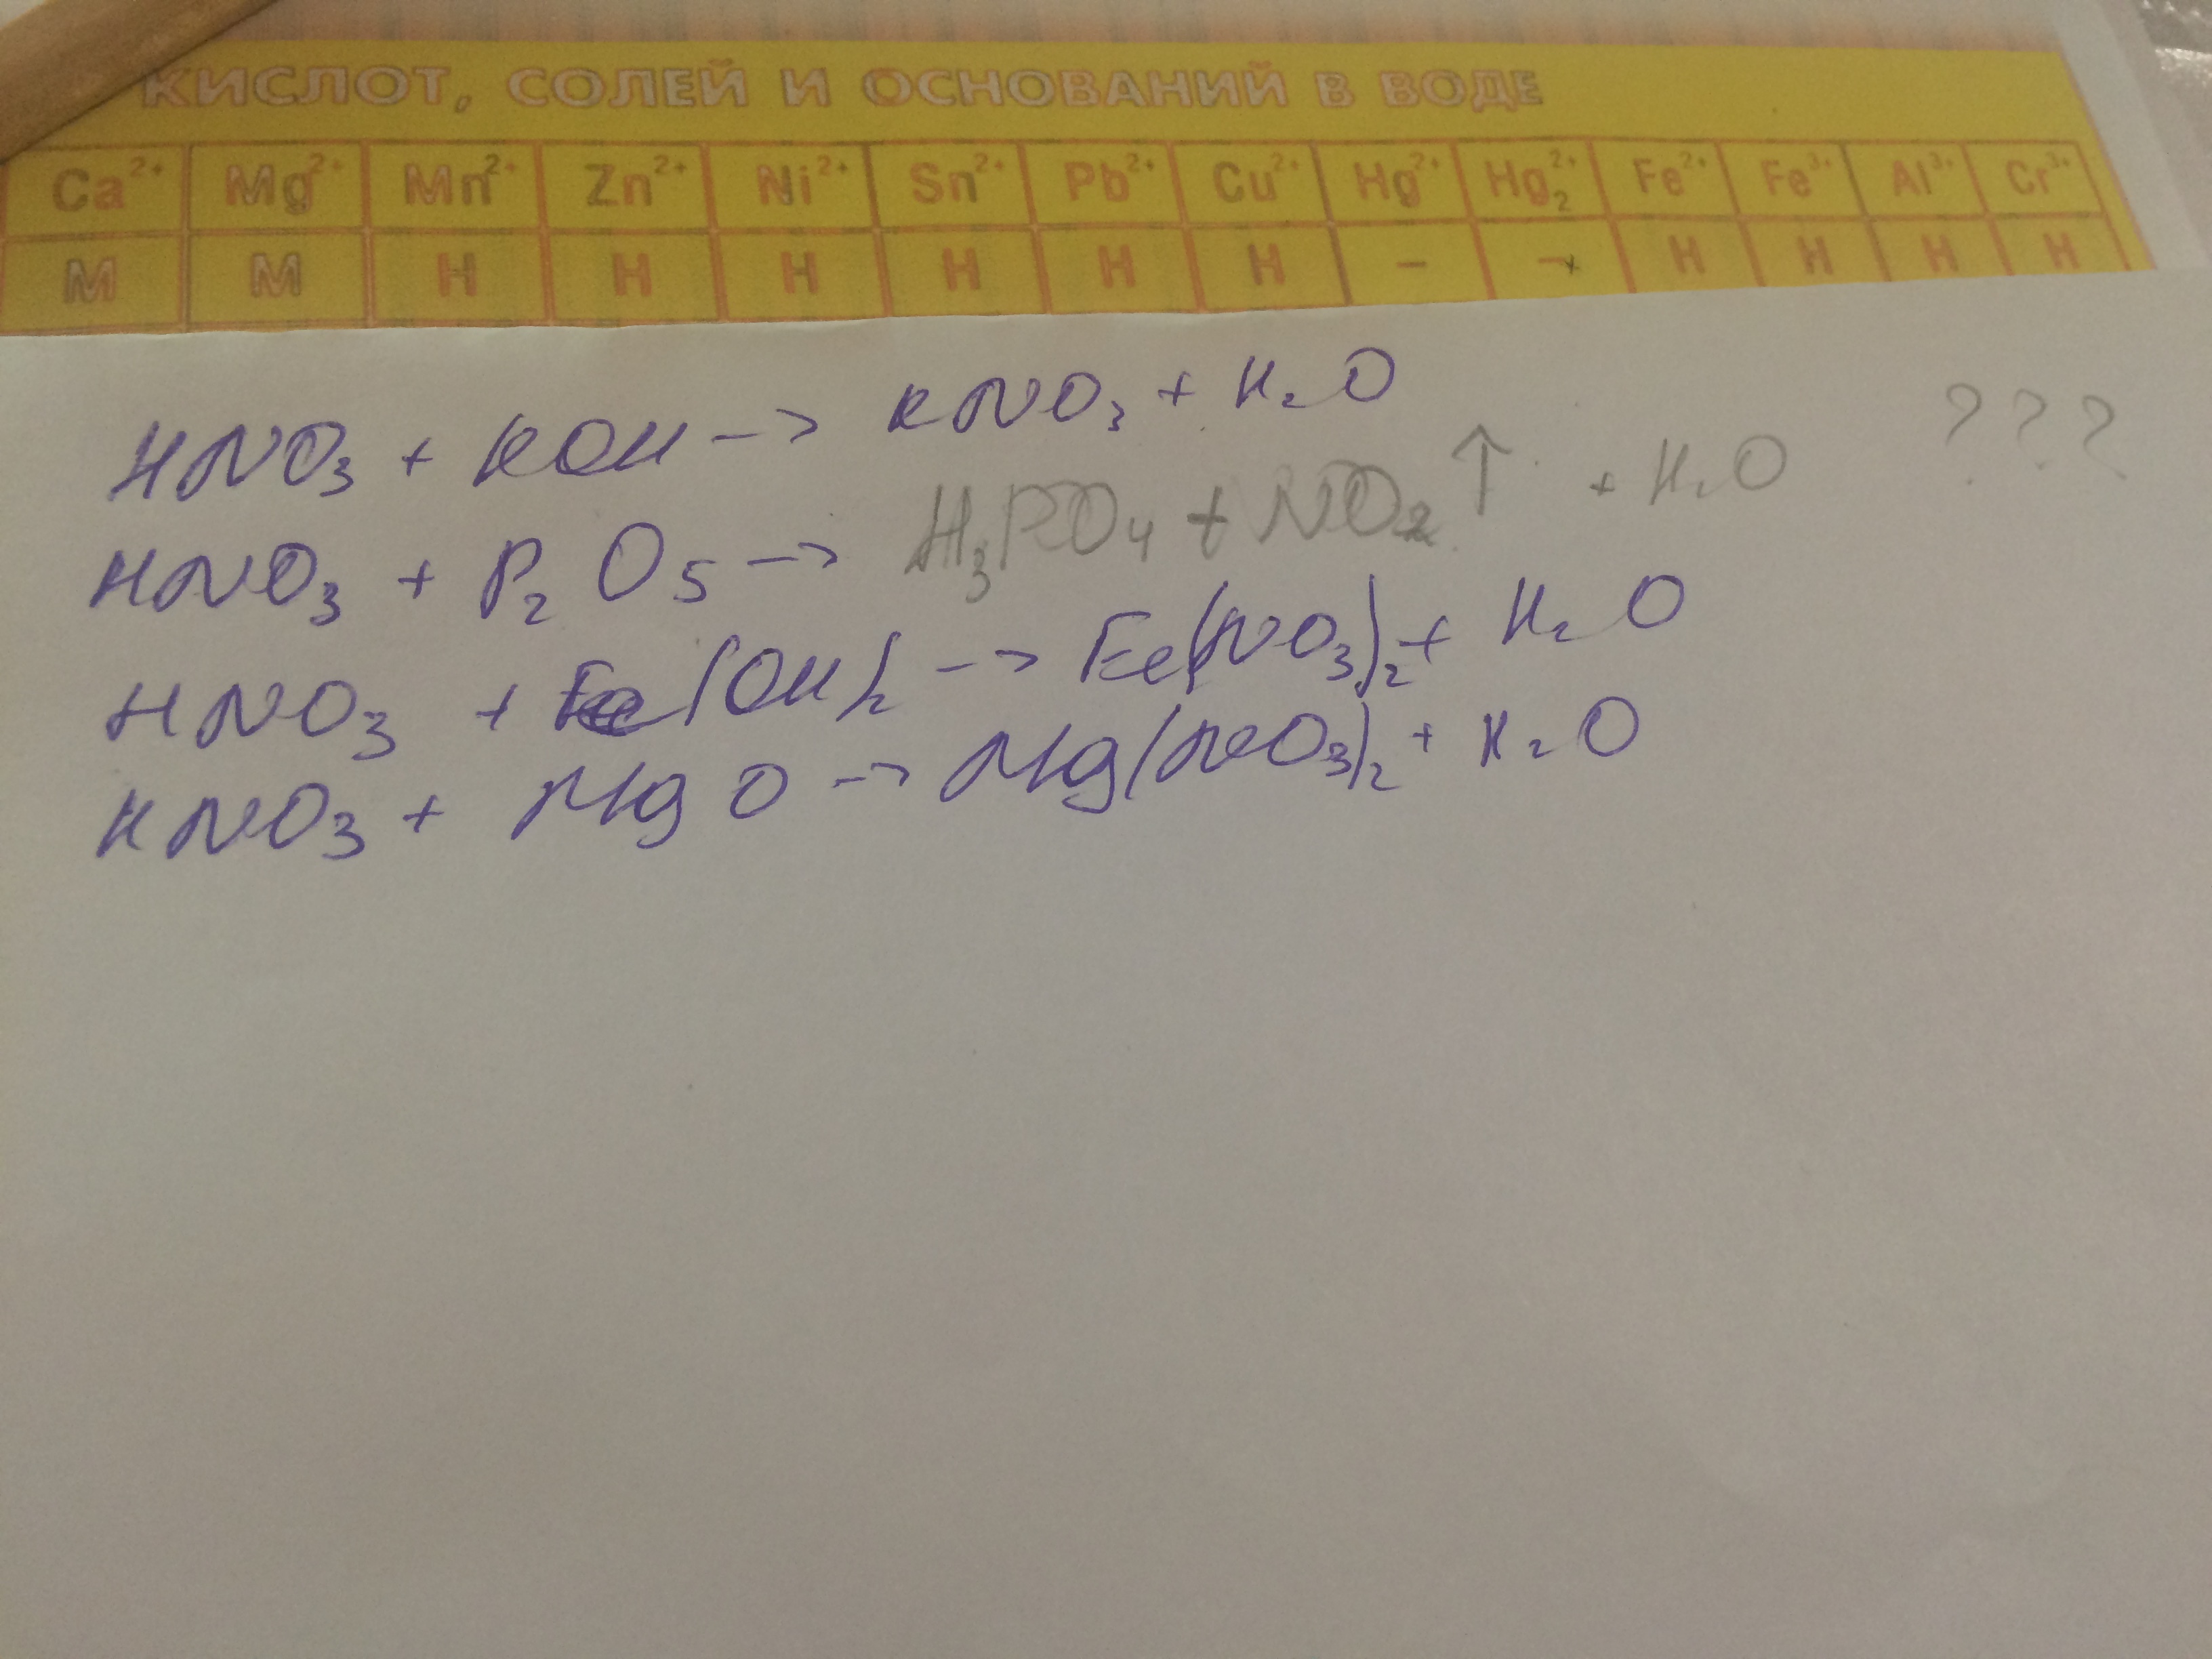 КИСЛОТ, СОЛЕЙ И ОСНОВАНИЙ В ВОДЕ
Ca²⁺ Mg²⁺ Mn²⁺ Zn²⁺ Ni²⁺ Sn²⁺ Pb²⁺ Cu²⁺ Hg²⁺ Hg₂²⁺ Fe²⁺ Fe³⁺ Al³⁺ Cr³⁺
М М Н Н Н Н Н Н – – Н Н Н Н
HNO₃ + KOH → KNO₃ + H₂O
HNO₃ + P₂O₅ → H₃PO₄ + NO₂↑ + H₂O ???
HNO₃ + Fe(OH)₂ → Fe(NO₃)₂ + H₂O
HNO₃ + MgO → Mg(NO₃)₂ + H₂O